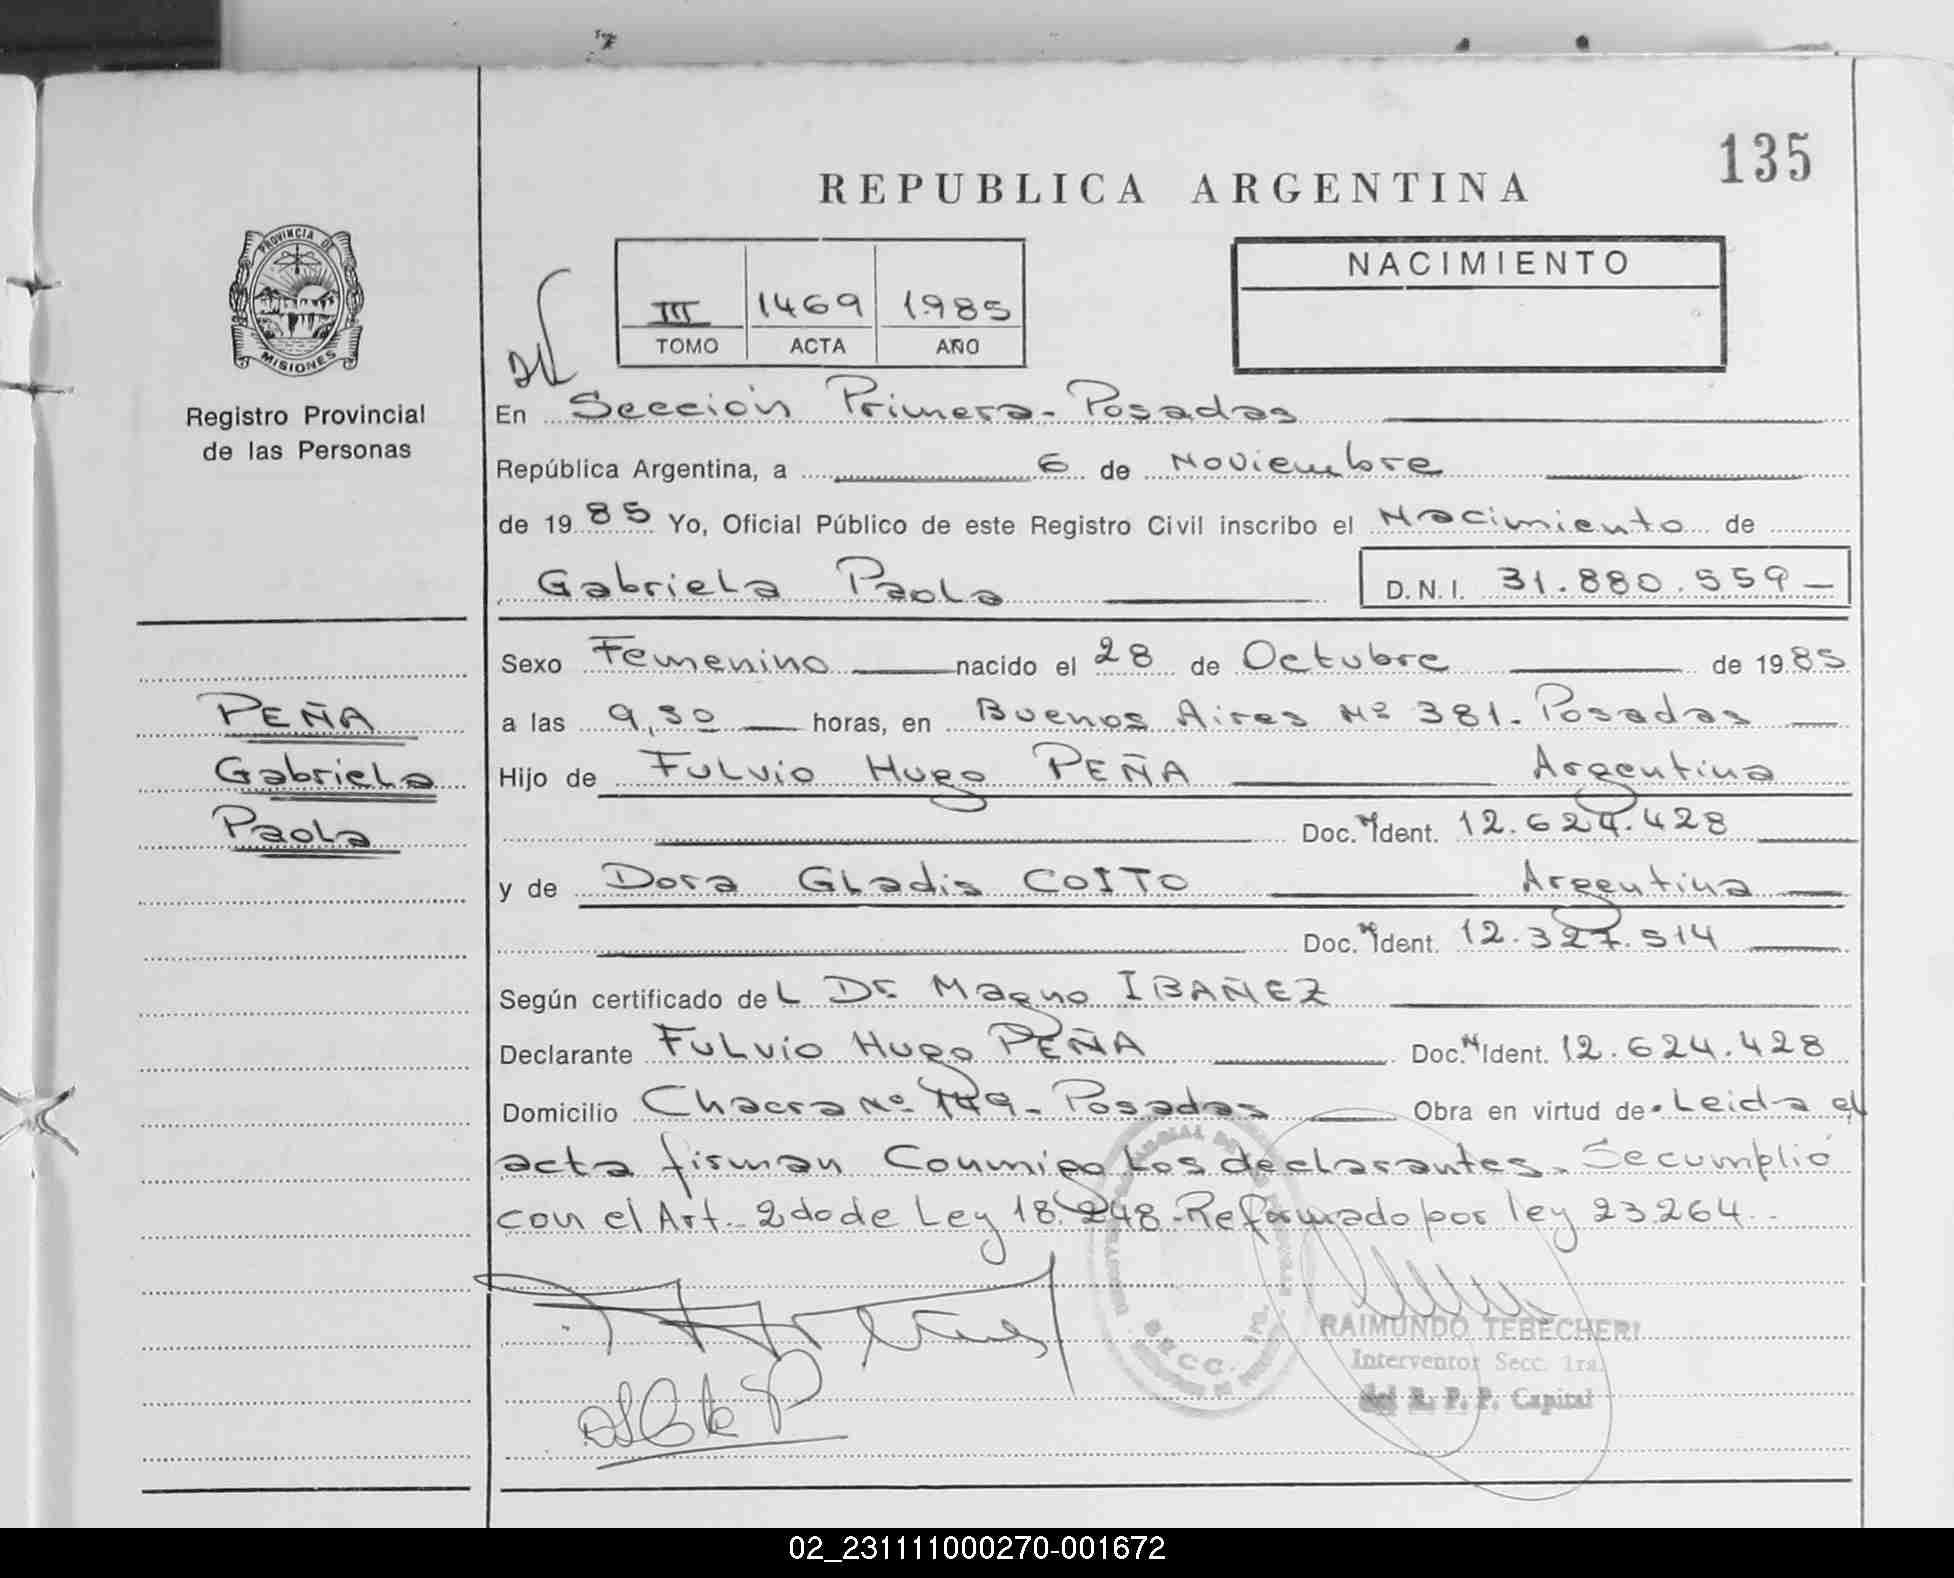 135
REPUBLICA ARGENTINA
PROVINCIA DE
MISIONES
Registro Provincial
de las Personas
III 1469 1.985
TOMO ACTA AÑO
NACIMIENTO
En Sección Primera - Posadas
República Argentina, a 6 de Noviembre
de 19 85 Yo, Oficial Público de este Registro Civil inscribo el Nacimiento de
Gabriela Paola D.N.I. 31.880.559 -
Sexo Femenino nacido el 28 de Octubre de 19 85
PEÑA
Gabriela
Paola
a las 9,30 horas, en Buenos Aires Nº 381. Posadas
Hijo de Fulvio Hugo PEÑA Argentina
Doc. Ident. 12.624.428
y de Dora Gladis COITO Argentina
Doc. Ident. 12.327.514
Según certificado del Dr. Magno IBAÑEZ
Declarante Fulvio Hugo PEÑA Doc. Ident. 12.624.428
Domicilio Chacra Nº 149 - Posadas Obra en virtud de. Leida el
acta firman Conmigo Los declarantes. Se cumplió
con el Art. 2do de Ley 18.248. Reformado por ley 23.264.
RAIMUNDO TEBECHERI
Interventor Secc. 1ra.
del R. P. P. Capital
02_231111000270-001672